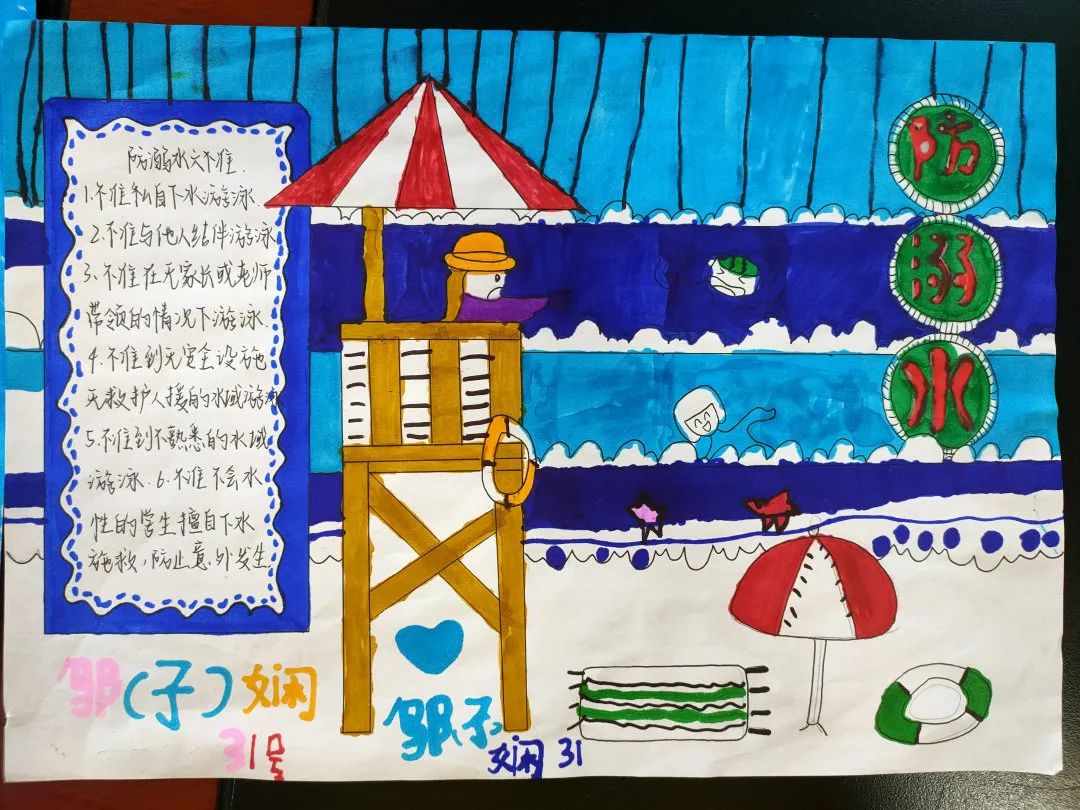 防溺水六不准.
1.不准私自下水游泳.
2.不准与他人结伴游泳
3.不准在无家长或老师
带领的情况下游泳.
4.不准到无安全设施
无救护人援的水域游泳
5.不准到不熟悉的水域
游泳.6.不准不会水
性的学生擅自下水
施救,防止意外发生.
防
溺
水
邹(子)娴
31号
邹子
娴 31